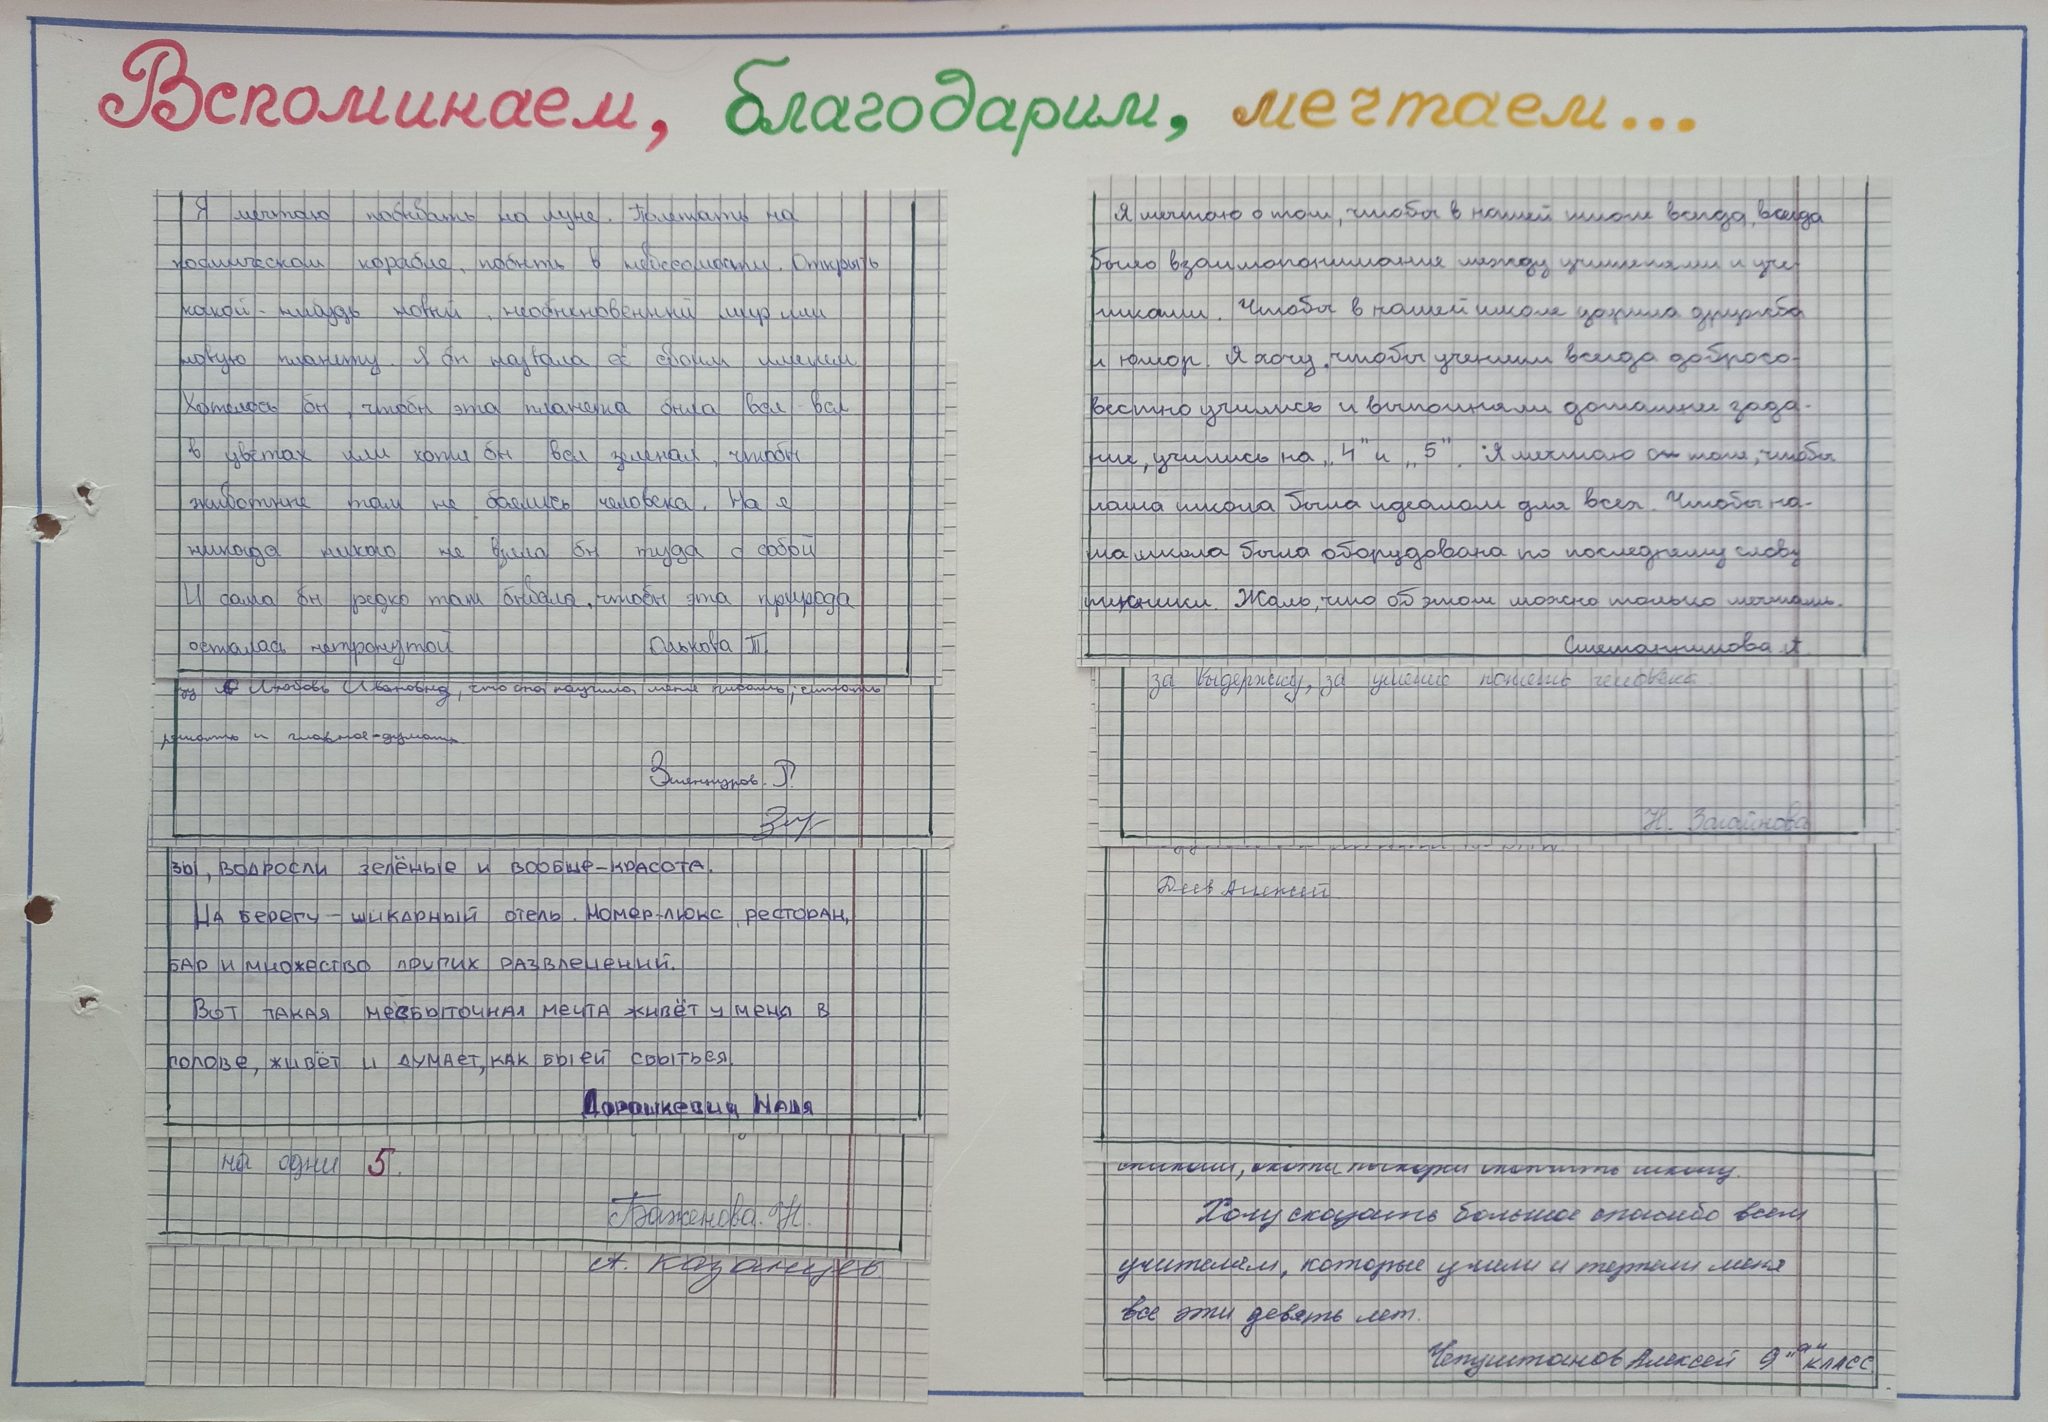 Вспоминаем, благодарим, мечтаем...
Я мечтаю побывать на луне. Полетать на
космическом корабле, побыть в невесомости. Открыть
какой-нибудь новый, необыкновенный мир или
новую планету. Я бы назвала её своим именем
Хотелось бы, чтобы эта планета была вся-вся
в цветах или хотя бы вся зеленая, чтобы
животные там не боялись человека. На я
никогда никого не взяла бы туда с собой
И сама бы редко там бывала, чтобы эта природа
осталась нетронутой Олькова Т.
Любовь Ивановна, что она научила меня писать, читать
решать и главное-думать
зы, водросли зелёные и вообще-красота.
На берегу - шикарный отель. Номер-люкс, ресторан,
бар и множество других развлечений.
Вот такая несбыточная мечта живёт у меня в
голове, живёт и думает, как бы ей сбыться.
Дорошкевич Надя
на одни 5.
Баженова. Н.
А. Казанцев
Я мечтаю о том, чтобы в нашей школе всегда, всегда
было взаимопонимание между учителями и уче-
никами. Чтобы в нашей школе царила дружба
и юмор. Я хочу, чтобы ученики всегда добросо-
вестно учились и выполняли домашнее зада-
ние, учились на „4" и „5". Я мечтаю о том, чтобы
наша школа была идеалом для всех. Чтобы на-
ша школа была оборудована по последнему слову
техники. Жаль, что об этом можно только мечтать.
за выдержку, за умение понять человека.
Н. Загайнова
Деев Алексей
Хочу сказать большое спасибо всем
учителям, которые учили и терпели меня
все эти девять лет.
Алексей 9 "а" класс